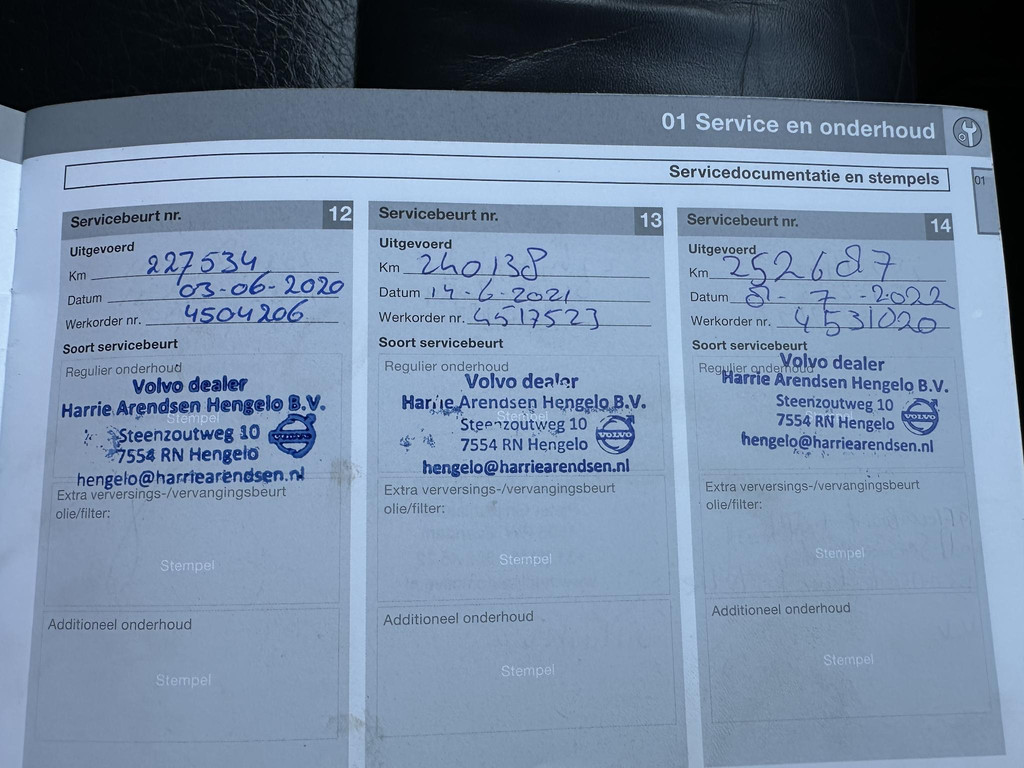 01 Service en onderhoud
01
Servicedocumentatie en stempels
Servicebeurt nr. 12
Uitgevoerd
Km 227534
Datum 03-06-2020
Werkorder nr. 4504206
Soort servicebeurt
Regulier onderhoud
Volvo dealer
Harrie Arendsen Hengelo B.V.
Stempel
Steenzoutweg 10
VOLVO
7554 RN Hengelo
hengelo@harriearendsen.nl
Extra verversings-/vervangingsbeurt
olie/filter:
Stempel
Additioneel onderhoud
Stempel
Servicebeurt nr. 13
Uitgevoerd
Km 240138
Datum 14-6-2021
Werkorder nr. 4517523
Soort servicebeurt
Regulier onderhoud
Volvo dealer
Harrie Arendsen Hengelo B.V.
Stempel
Steenzoutweg 10
VOLVO
7554 RN Hengelo
hengelo@harriearendsen.nl
Extra verversings-/vervangingsbeurt
olie/filter:
Stempel
Additioneel onderhoud
Stempel
Servicebeurt nr. 14
Uitgevoerd
Km 252687
Datum - 7 - 2022
Werkorder nr. 4531020
Soort servicebeurt
Regulier onderhoud
Volvo dealer
Harrie Arendsen Hengelo B.V.
Steenzoutweg 10
VOLVO
7554 RN Hengelo
hengelo@harriearendsen.nl
Extra verversings-/vervangingsbeurt
olie/filter:
Stempel
Additioneel onderhoud
Stempel